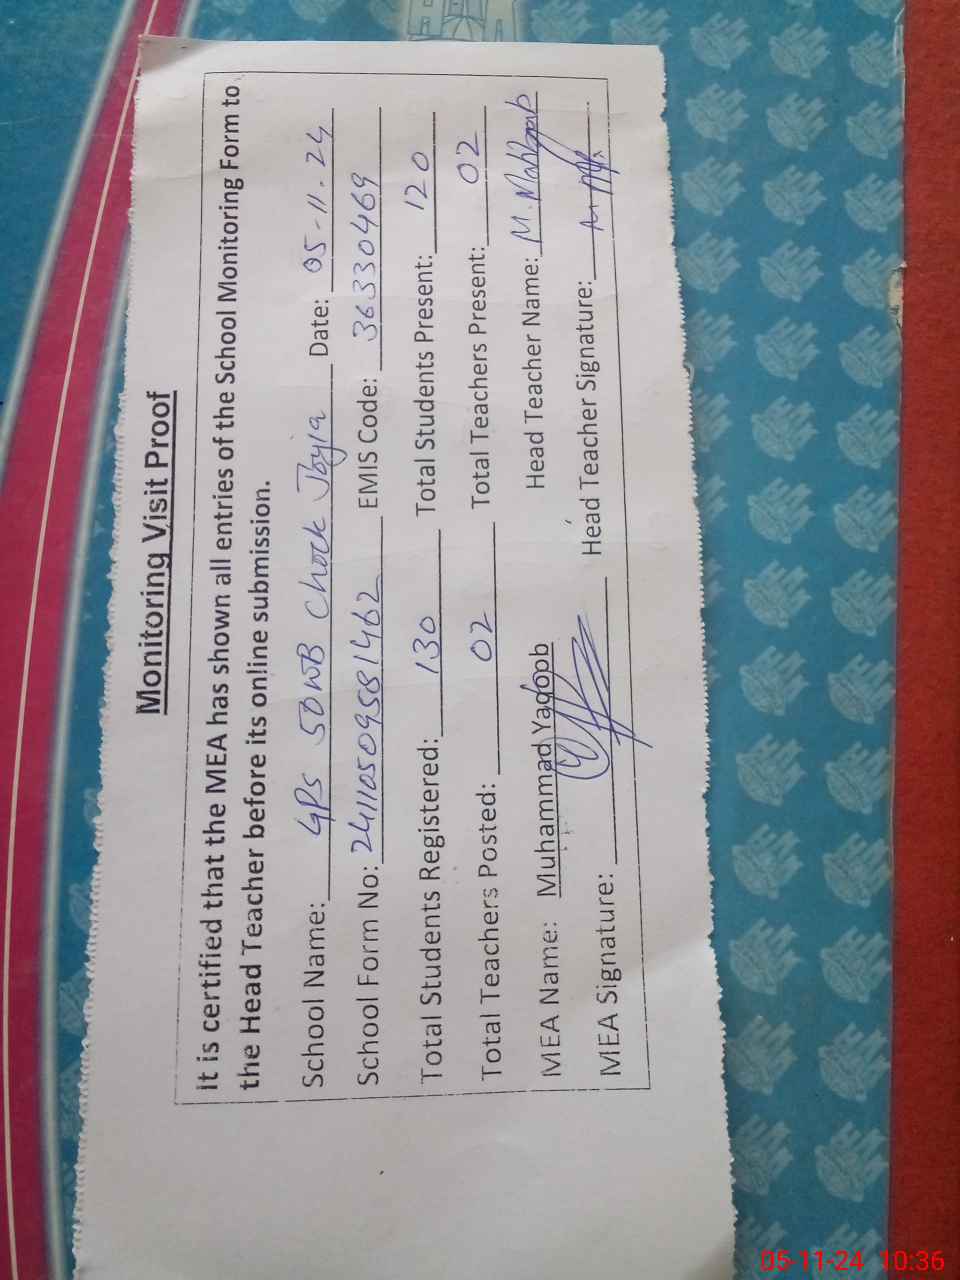 Monitoring Visit Proof
It is certified that the MEA has shown all entries of the School Monitoring Form to
the Head Teacher before its online submission.
School Name: GPS 50WB Chock Joyia Date: 05-11-24
School Form No: 24110509581462 EMIS Code: 36330469
Total Students Registered: 130 Total Students Present: 120
Total Teachers Posted: 02 Total Teachers Present: 02
MEA Name: Muhammad Yaqoob Head Teacher Name: M. Mahboob
MEA Signature: Head Teacher Signature:
05-11-24 10:36